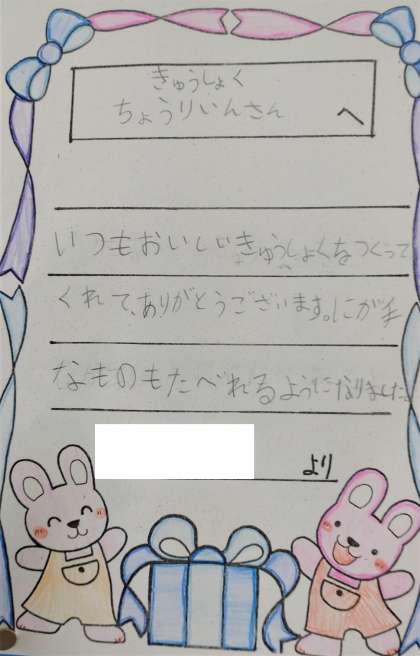 きゅうしょく
ちょうりいんさん
へ
いつもおいしいきゅうしょくをつくって
くれて、ありがとうございます。にが手
なものもたべれるようになりました。
より